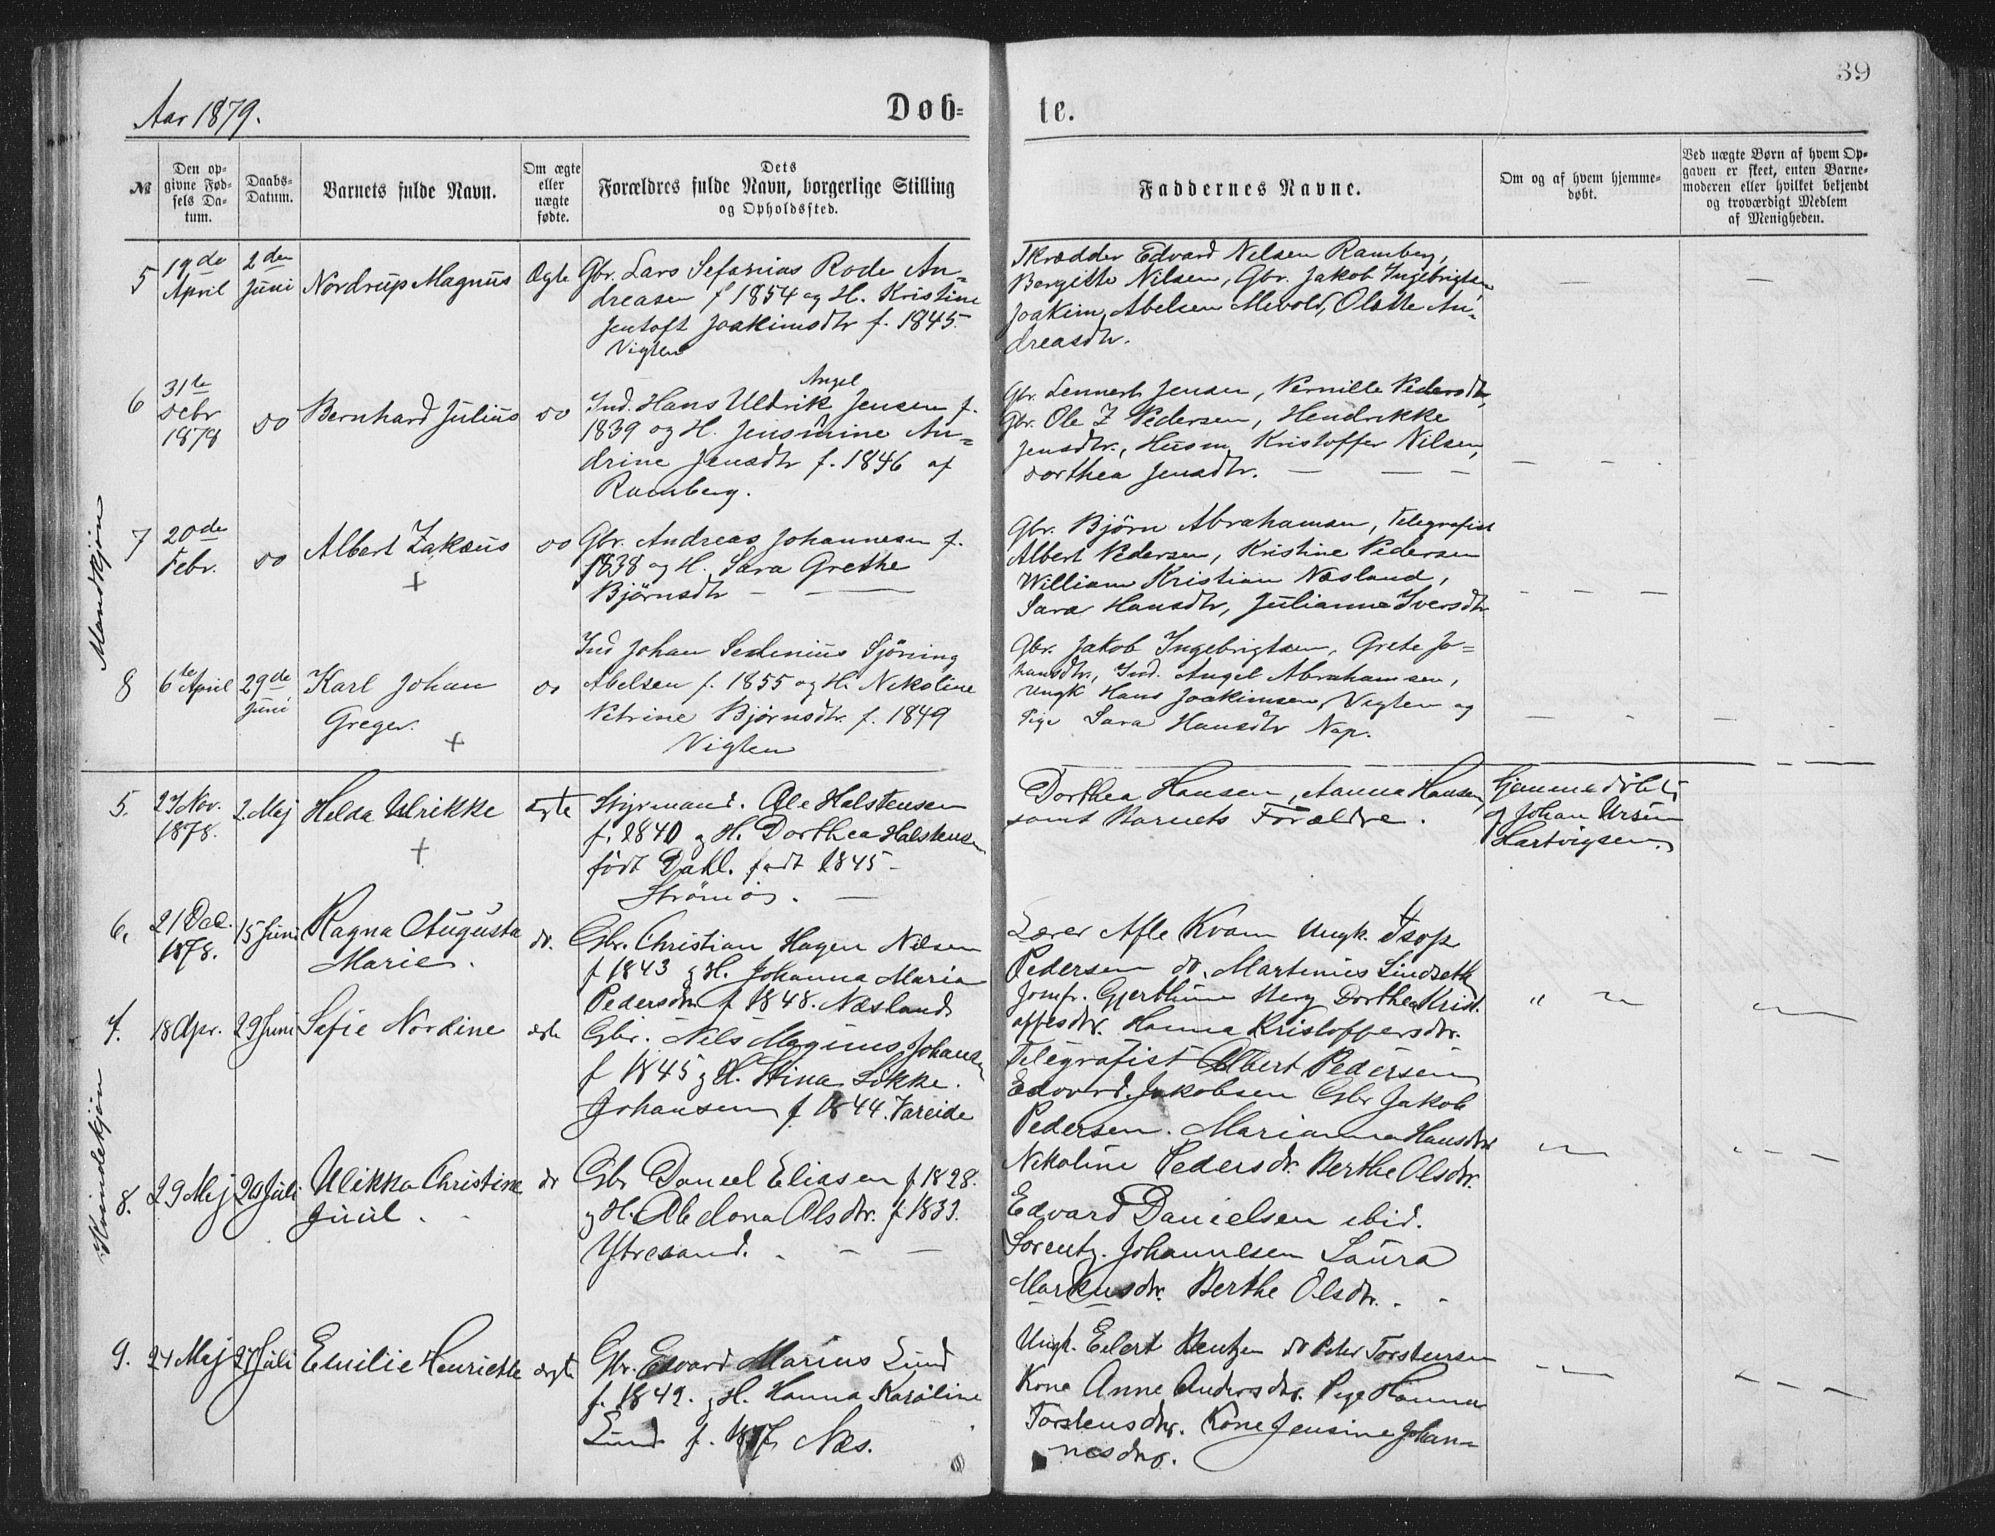 39
Aar 1879.
Døb- te.
№
Den opgivne Fødsels Datum.
Daabs-Datum.
Barnets fulde Navn.
Om ægte eller uægte fødte.
Dets Forældres fulde Navn, borgerlige Stilling og Opholdssted.
Faddernes Navne.
Om og af hvem hjemmedøbt.
Ved uægte Børn af hvem Opgaven er skeet, enten Barnemoderen eller hvilket bekjendt og troværdigt Medlem af Menigheden.
Mandkjøn
5 19de April 2den Juni Nordrup Magnus Ægte
Gbr. Lars Sefanias Rode An-
dreasen f 1854 og H. Kristine
Jentoft Joakimsdtr f. 1845.
Vigten
Skrædder Edvard Nilsen Ramberg,
Bergitte Nilsen, Gbr. Jakob Ingebrigtsen
Joakim Abelsen Mevold, Olette An-
dreasdtr.
6 31te Decbr 1878 do Bernhard Julius do
Angel
Ind. Hans Uldrik Jensen f.
1839 og H. Jensmine An-
drine Jensdtr f. 1846 af
Ramberg.
Gbr. Lennert Jensen, Pernille Pedersdtr,
Gbr. Ole Z Pedersen, Hendrikke
Jensdtr., Husm. Kristoffer Nilsen,
Dorthea Jensdtr. — — —
7 20de Febr. do Albert Zakæus do
+
Gbr. Andreas Johannesen f.
1838 og H. Sara Grethe
Bjørnsdtr — —
Gbr. Bjørn Abrahamsen, Telegrafist
Albert Pedersen, Kristine Pedersen
William Kristian Næsland,
Sara Hansdtr, Julianna Iversdtr
8 6te April 29de Juni Karl Johan
Greger.
+
do
Ind Johan Sedenius Sjöning
Abelsen f. 1855 og H. Nikoline
Petrine Bjørnsdtr. f. 1849
Vigten
Gbr. Jakob Ingebrigtsen, Grete Jo-
hansdtr., Ind. Angel Abrahamsen,
Ungk Hans Joakimsen, Vigten og
Pige Sara Hansdtr Nap.
Kvindekjøn
5. 27 Nov. 1878. 2 Maj Helda Ulrikke
+
ægte
Styrmand. Ole Halstensen
f. 1840 og H. Dorthea Halstensen
födt Dahl. födt 1845 -
Strömöi. —
Dorthea Hansen, Anna Hansen
samt Barnets Forældre.
Hjemmedöbt
af Johan Ursin
Hartvigsen.
6. 21 Dec. 1878. 15 Juni Ragna Augusta
Marie.
do.
Gbr. Christian Hagen Nilsen
f 1843 og H. Johanna Maria
Pedersdtr f 1848. Næsland
Lærer Afle Kvam Ungk. Isop
Pedersen do. Martinus Lindseth
Jomfr. Gjerthine Berg Dorthea Krist-
offesdtr. Hanna Kristoffersdtr.
7. 18 Apr. 29 Juni Safie Nordine ægte
Gbr. Nils Magnus Johansen
f 1845 og H. Stina Lökke.
Johansen f. 1844. Vareide
Telegrafist Albert Pedersen
Edvard. Jakobsen Gbr Jakob
Pedersen. Marianna Hansdtr
Nikoline Pedersdtr. Berthe Olsdtr.
8. 29 Maj 20 Juli Ulikka Christine
Juul.
do
Gbr Daneel Eliasen f 1828.
og H. Abelona Olsdtr. f. 1833.
Ytresand. — —
Edvard Danielsen ibid.
Lorentz. Johannesen Laura
Markusdtr. Berthe Olsdtr.
9. 24 Maj 27 Juli Emilie Henriette ægte
Gbr. Edvard Marius Lund
f. 1842. og H. Hanna Karoline
Lund f. Næs.
Ungk. Eilert Rentzen do Peter Torstensen
Kone Anne Andersdtr. Pige Hanna
Torstensdtr. Kone Jensine Johan-
nesdtr.